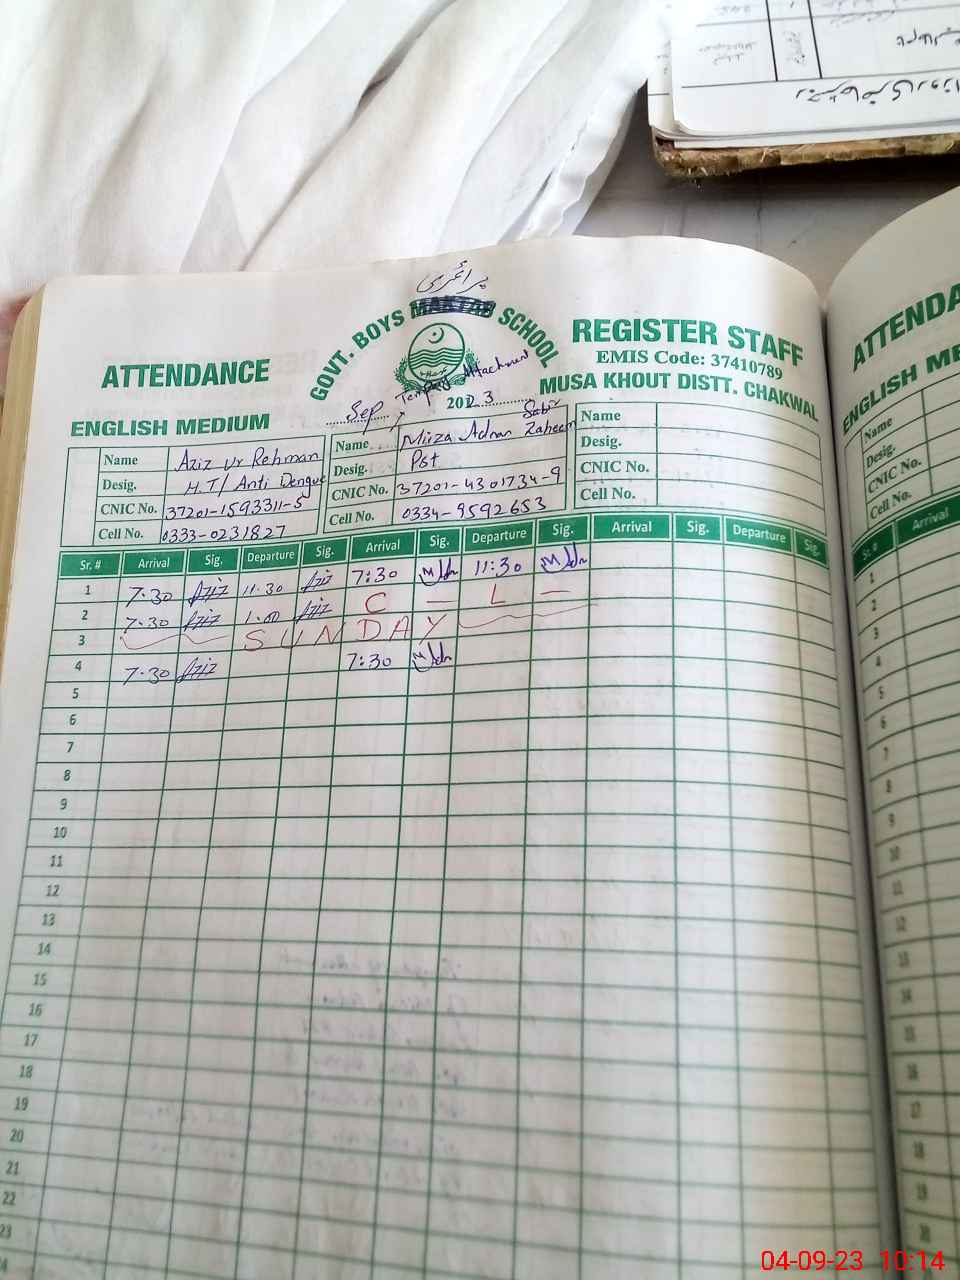 پرائمری
GOVT. BOYS MAKTAB SCHOOL
ATTENDANCE
REGISTER STAFF
EMIS Code: 37410789
MUSA KHOUT DISTT. CHAKWAL
ENGLISH MEDIUM
Sep 2023
Tempry Attachment
Name Aziz Ur Rehman
Desig. H.T/ Anti Dengue
CNIC No. 37201-1593311-5
Cell No. 0333-0231827
Name Mirza Adnan Zaheem Sabir
Desig. Pst
CNIC No. 37201-4301734-9
Cell No. 0334-9592653
Name
Desig.
CNIC No.
Cell No.
Sr. # Arrival Sig. Departure Sig. Arrival Sig. Departure Sig. Arrival Sig. Departure Sig.
1 7:30 Aziz 11:30 Aziz 7:30 M Adn 11:30 M Adn
2 7:30 Aziz 1:00 Aziz C - L -
3 SUNDAY
4 7:30 Aziz 7:30 M Adn
5
6
7
8
9
10
11
12
13
14
15
16
17
18
19
20
21
22
23
24
ATTENDA
ENGLISH ME
Name
Desig.
CNIC No.
Cell No.
Sr. # Arrival
1
2
3
4
5
6
7
8
9
10
11
12
13
14
15
16
17
18
19
20
04-09-23 10:14